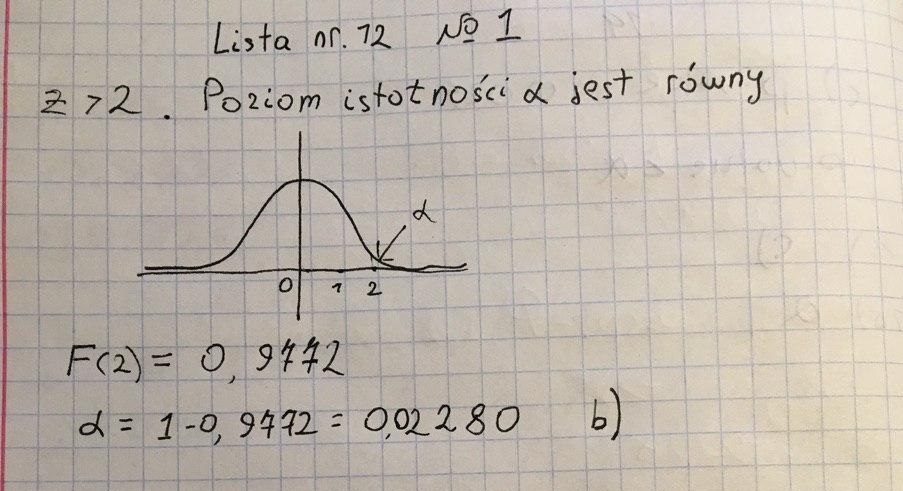 Lista nr. 12 № 1
z > 2. Poziom istotności α jest równy
α
0 1 2
F(2) = 0,9772
α = 1-0,9772 = 0,02280 b)